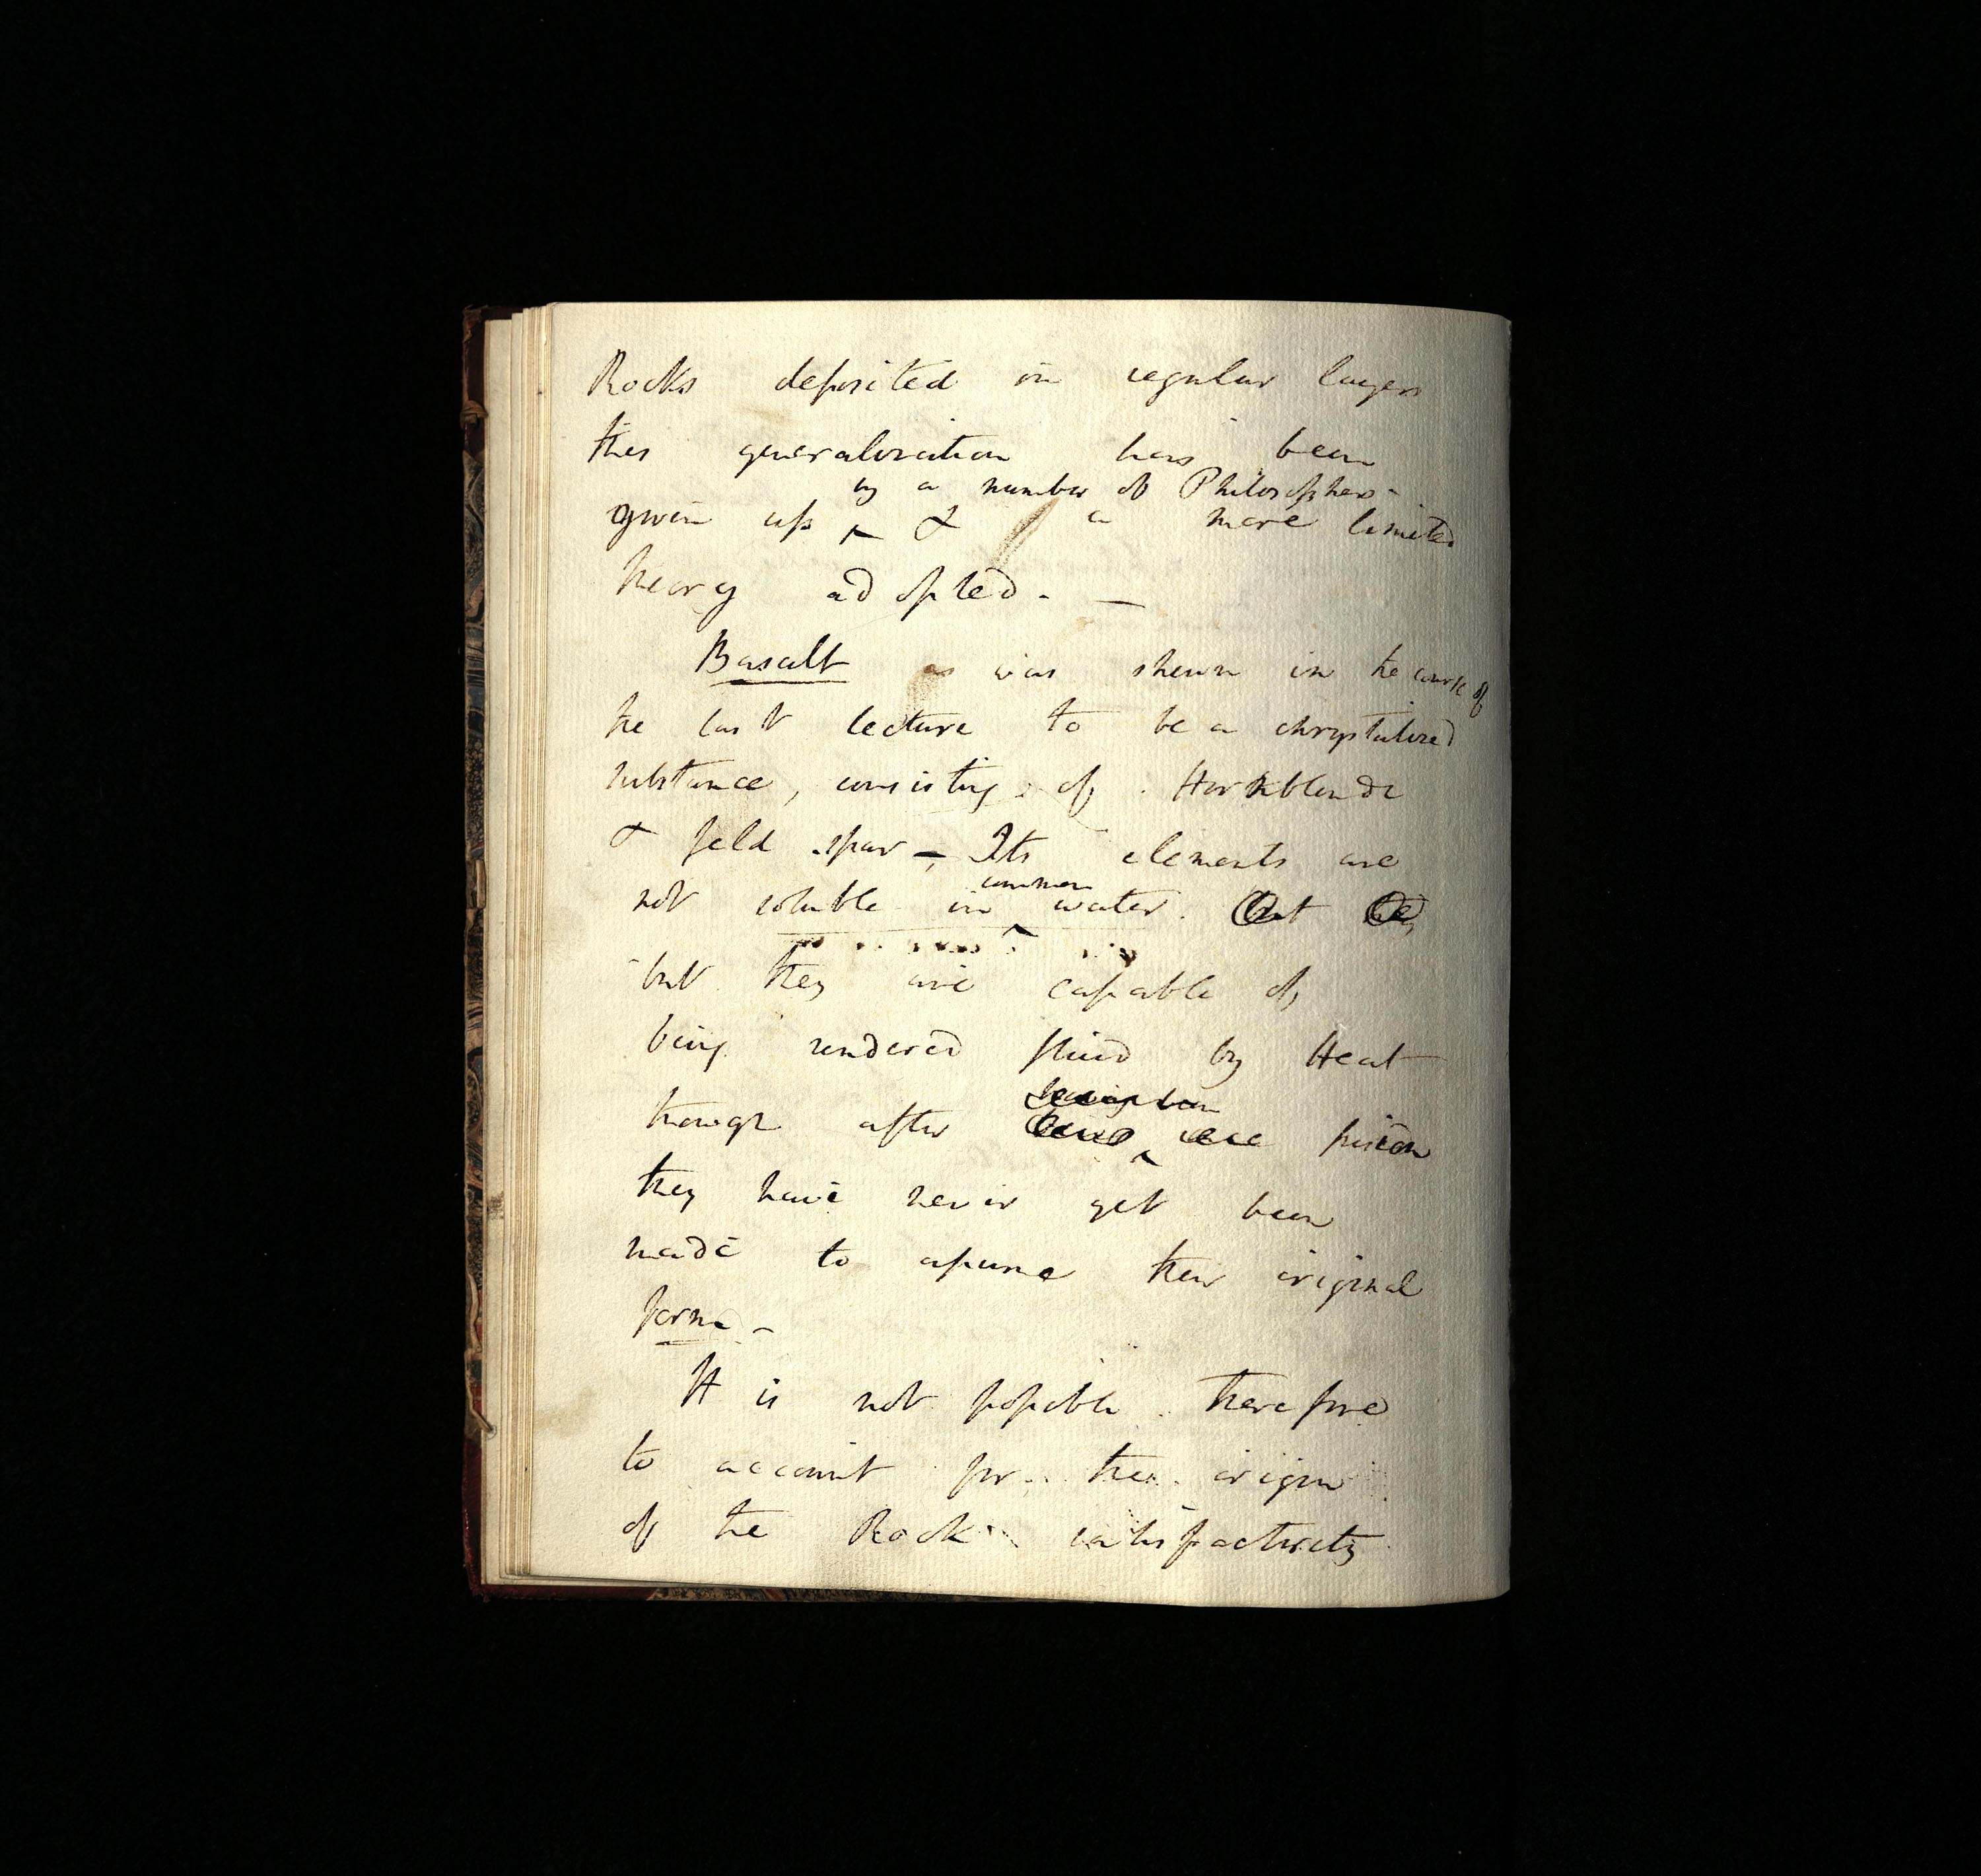 Rocks deposited in regular layers
this generalization has been
by a number of Philosophers -
given up ^ & a more limited
theory adopted. —
Basalt as was shewn in the course of
the last lecture to be a chrystalized
substance, consisting of Hornblende
& feld spar —, Its elements are
common
not soluble in ^ water. But they
but they are capable of
being rendered fluid by Heat
having been
though after ^ fusion
they have never yet been
made to assume their original
form —
It is not possible therefore
to account for the origin
of the Rock satisfactorily